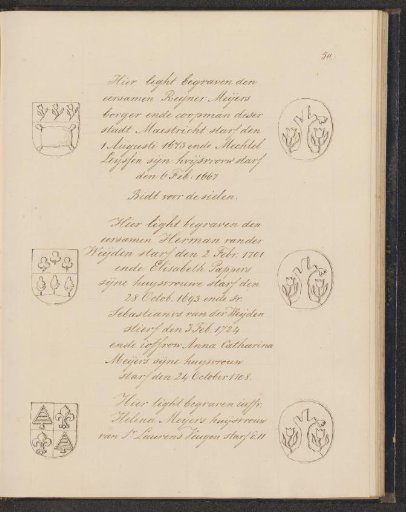 50
Hier light begraven den
eersamen Reijner Meijers
borger ende coopman deser
stadt Maestricht starf den
1 Augusti 1673 ende Mechtel
Leijssen syn huijsvrouw starf
den 6 Feb. 1667
Bidt voor de sielen.
Hier light begraven den
eersamen Herman van der
Weijden starf den 2 Febr. 1701
ende Elisabeth Papers
syne huijsvrouwe starf den
28 Octob. 1693 ende Sr.
Sebastianus van der Weijden
stierf den 3 Feb. 1724
ende joffrow Anna Catharina
Meijers syne huisvrouw
starf den 24 October 1708.
Hier light begraven juffr.
Helena Meyers huijsvrouw
van Sr. Laurens starf d. 11